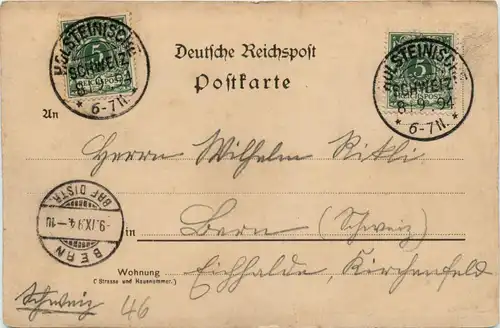 HOLSTEINISCHE
SCHWEIZ
8/9.94
* 6-7N. *
5
HOLSTEINISCHE
SCHWEIZ
8/9.94
* 6-7N. *
5
Deutsche Reichspost
Postkarte
An
Herrn Wilhelm Ritli
BRF. DISTR.
-9.IX.94.-10
BERN
in Bern (Schweiz)
Wohnung Eichhalde, Kirchenfeld
(Strasse und Hausnummer.)
Schweiz 46